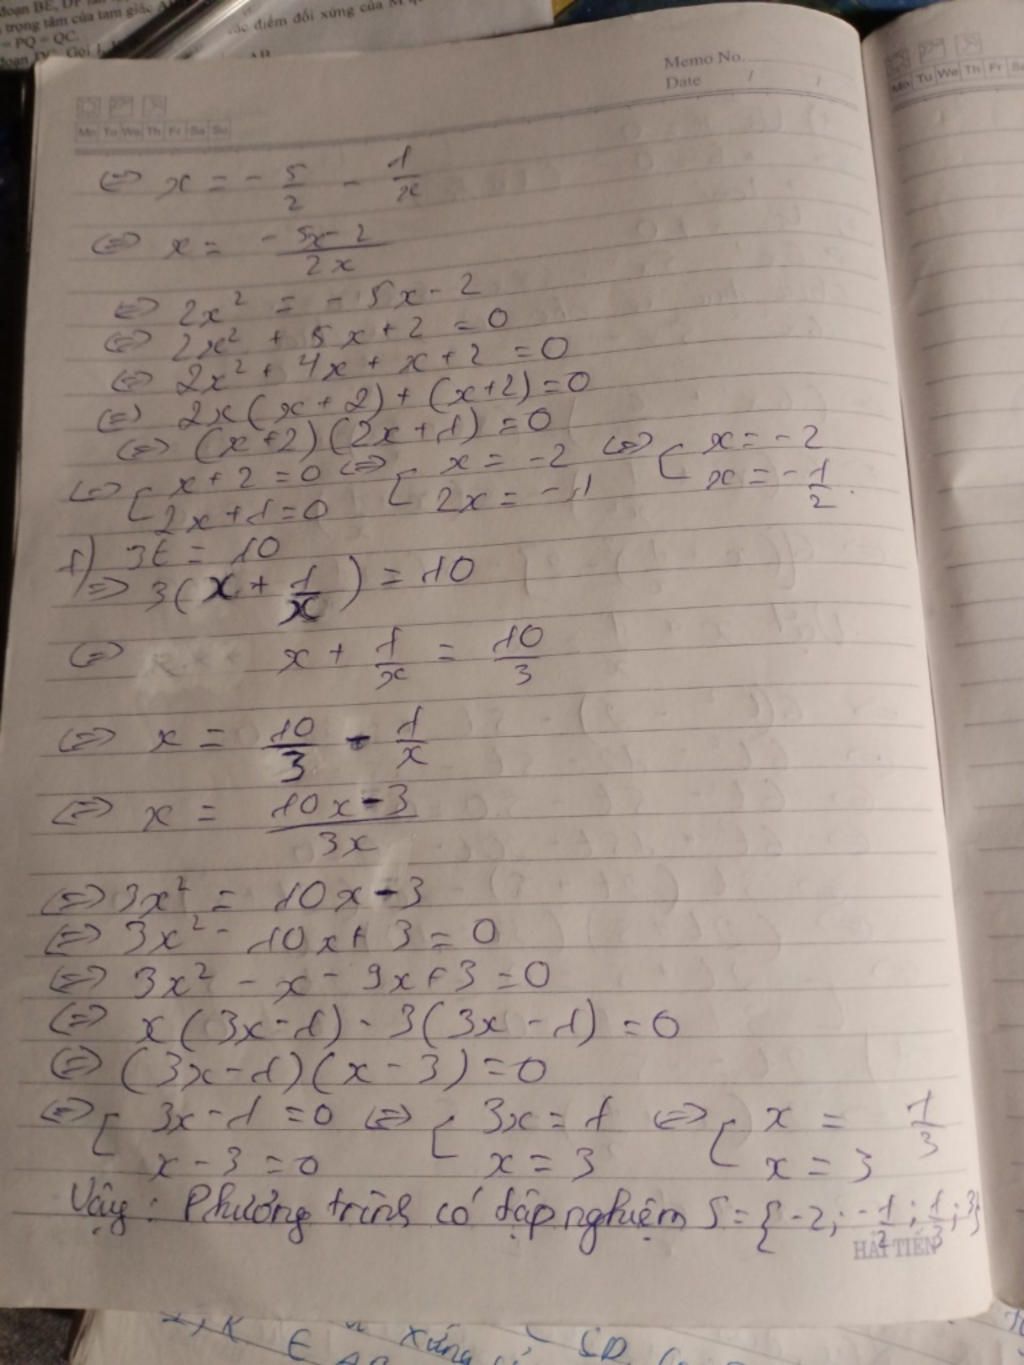 đoạn BE, DF
trọng tâm của tam giác
= PQ = QC.
các điểm đối xứng của M
Memo No.
Date / /
Mo Tu We Th Fr Sa Su
Mo Tu We Th Fr Sa
⇔ x = - 5/2 - 1/x
⇔ x = (-5x-2)/(2x)
⇔ 2x² = - 5x - 2
⇔ 2x² + 5x + 2 = 0
⇔ 2x² + 4x + x + 2 = 0
⇔ 2x(x+2) + (x+2) = 0
⇔ (x+2)(2x+1) = 0
⇔ [ x+2 = 0 ⇔ [ x = -2 ⇔ [ x = -2
2x+1 = 0 2x = -1 x = -1/2.
1) 3t = 10
⇒ 3(x + 1/x) = 10
⇔ x + 1/x = 10/3
⇔ x = 10/3 - 1/x
⇔ x = (10x-3)/(3x)
⇔ 3x² = 10x - 3
⇔ 3x² - 10x + 3 = 0
⇔ 3x² - x - 9x + 3 = 0
⇔ x(3x-1) - 3(3x-1) = 0
⇔ (3x-1)(x-3) = 0
⇔ [ 3x-1 = 0 ⇔ [ 3x = 1 ⇔ [ x = 1/3
x-3 = 0 x = 3 x = 3
Vậy : Phương trình có tập nghiệm S = {-2; -1/2; 1/3; 3}
HẢI TIẾN
xứng